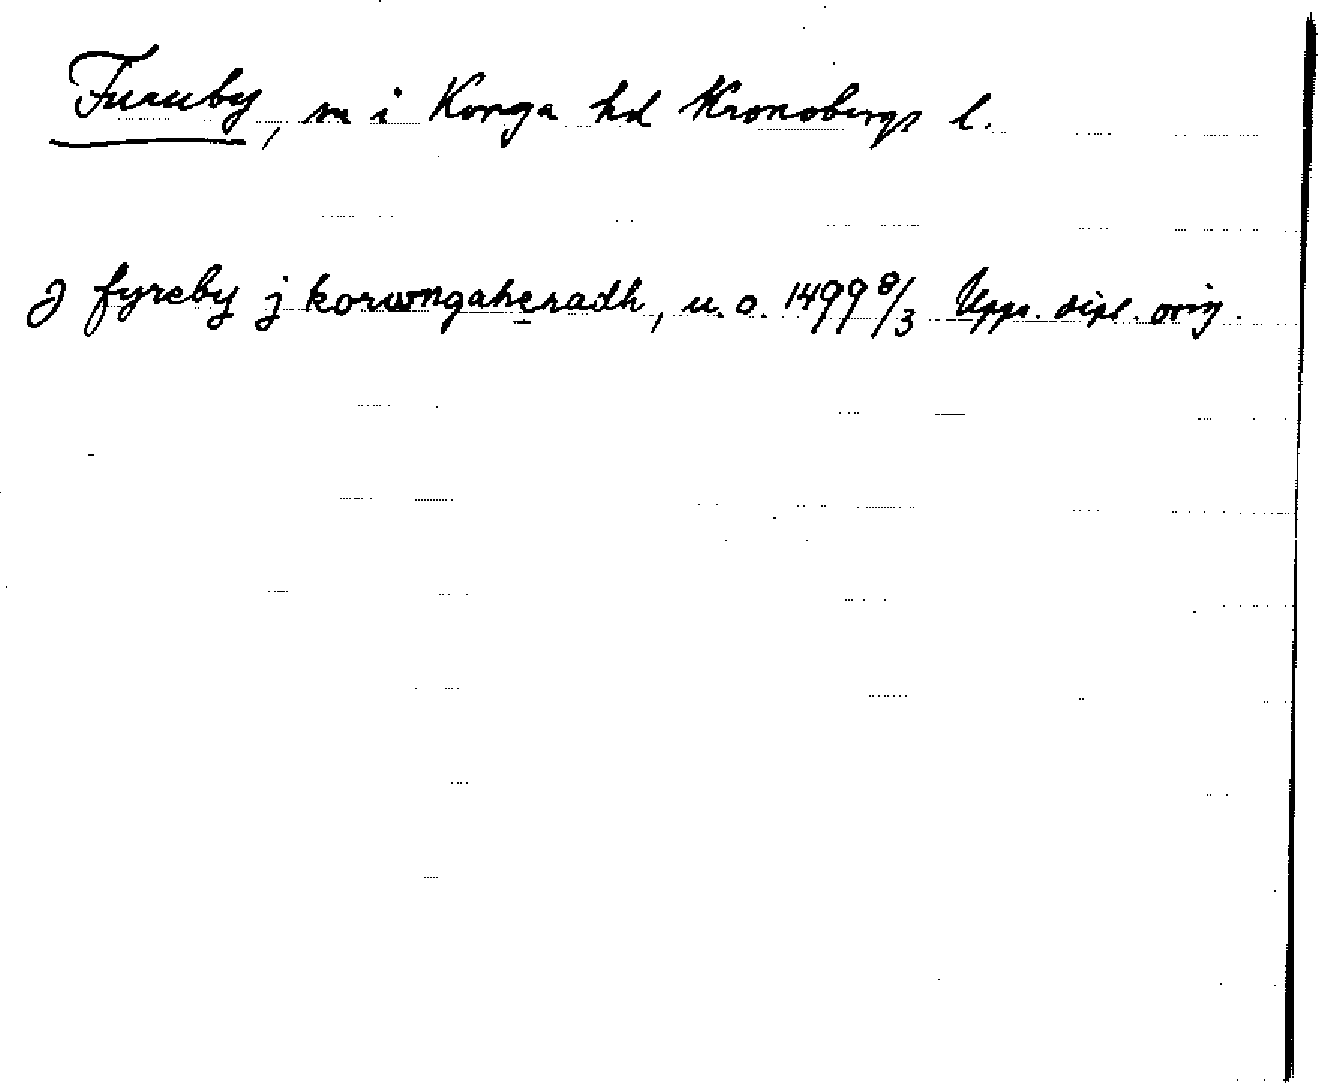 Furuby, sn i Konga hd Kronobergs l.
J fyreby j korwngaheradh, u. o. 1499 8/3 Upps. dipl. orig.